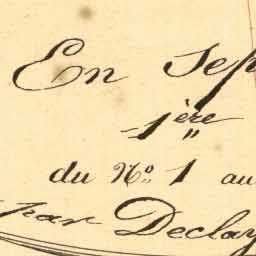 En Sep
1ère
du No. 1 au
par Declay